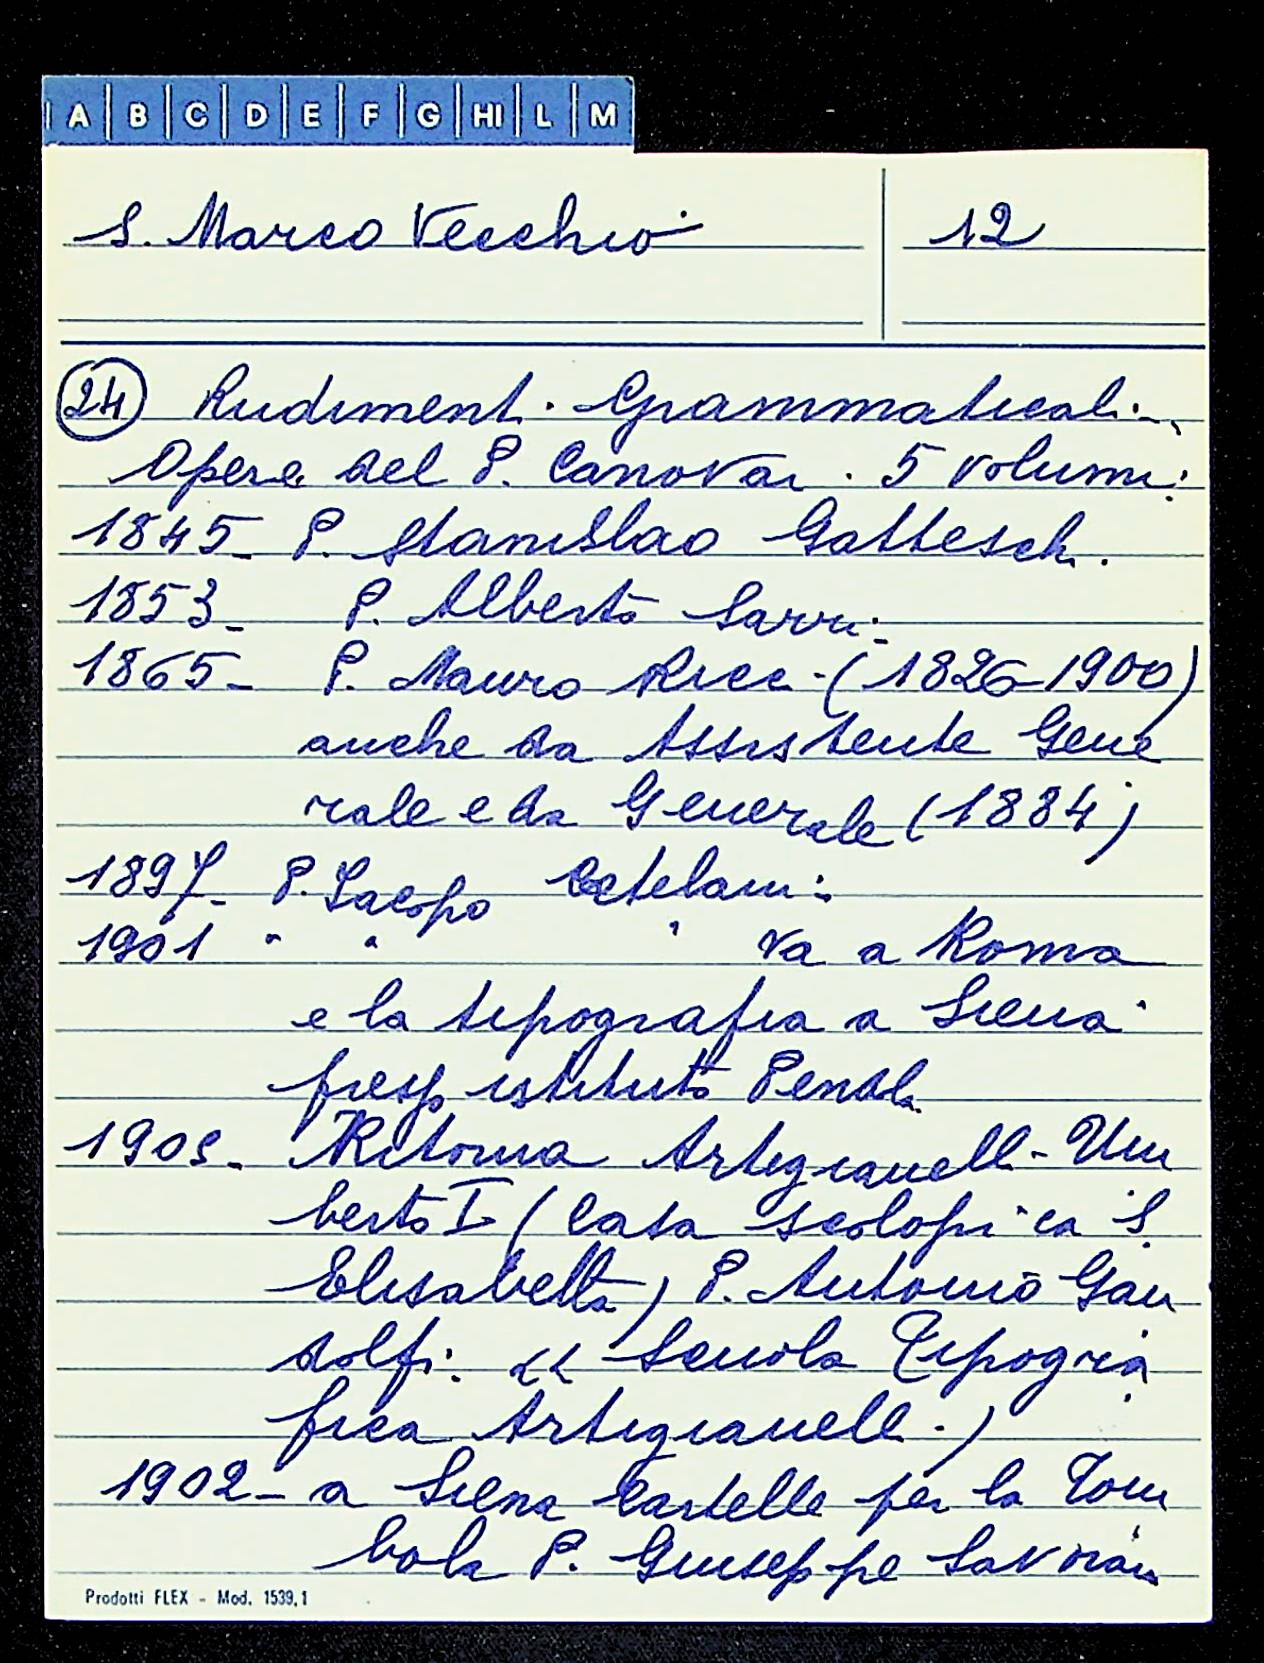 A B C D E F G HI L M
S. Marco Vecchio
12
24 Rudimenti Grammaticali.
Opere del P. Canovai. 5 volumi.
1845- P. Stanislao Gatteschi.
1853- P. Alberto Sarri.
1865- P. Mauro Ricci (1826-1900)
anche da Assistente Gene
rale e da Generale (1884)
1897- P. Iacopo
1901 " " " va a Roma
e la tipografia a Siena
presso istituto Pendola
Ritorna Artigianelli Um
berto I (Casa scolopica S.
Elisabetta) P. Antonio Gan
dolfi: << Scuola Tipogra
fica Artigianelli)
1902- a Siena Cartelle per la Tom
bola P. Giuseppe
Prodotti FLEX - Mod. 1539,1